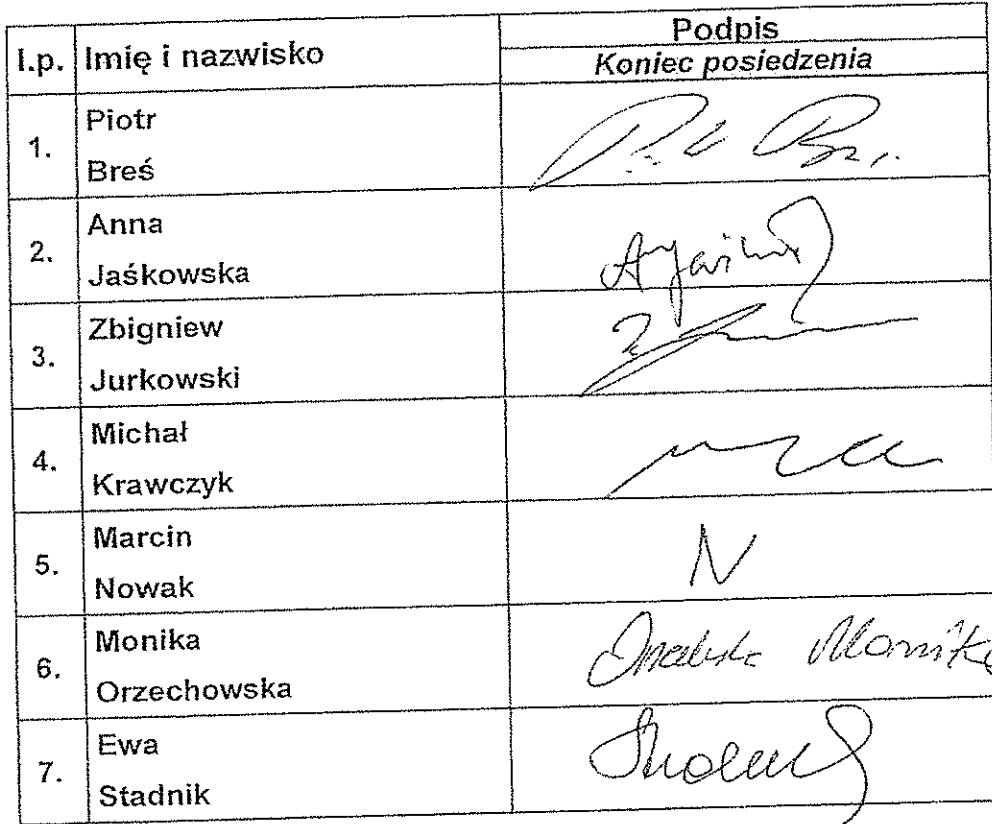 l.p. Imię i nazwisko Podpis
Koniec posiedzenia
1. Piotr
Breś
2. Anna
Jaśkowska
3. Zbigniew
Jurkowski
4. Michał
Krawczyk
5. Marcin
Nowak
N
6. Monika
Orzechowska
Monika
7. Ewa
Stadnik